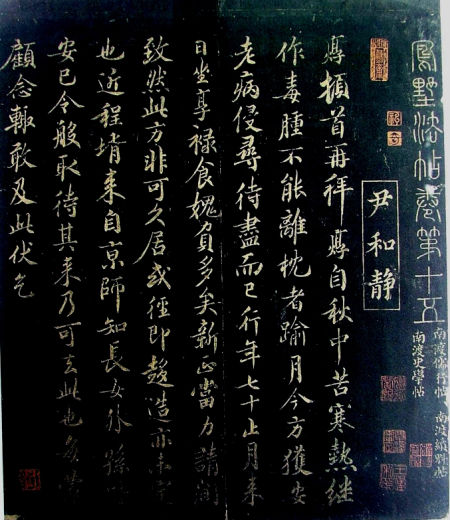 鳳墅法帖卷第十五
南渡儒行帖 南渡續對帖
南渡史學帖
尹和静
焞頓首再拜焞自秋中苦寒熱繼
作毒腫不能離枕者踰月今方獲安
老病侵尋待盡而已行年七十止月来
日坐享禄食媿負多矣新正當力請
致然此方非可久居或徑即趍造亦未
也近程堉来自京師知長女外孫
安已令般取待其来乃可去此也
顧念輙敢及此伏乞